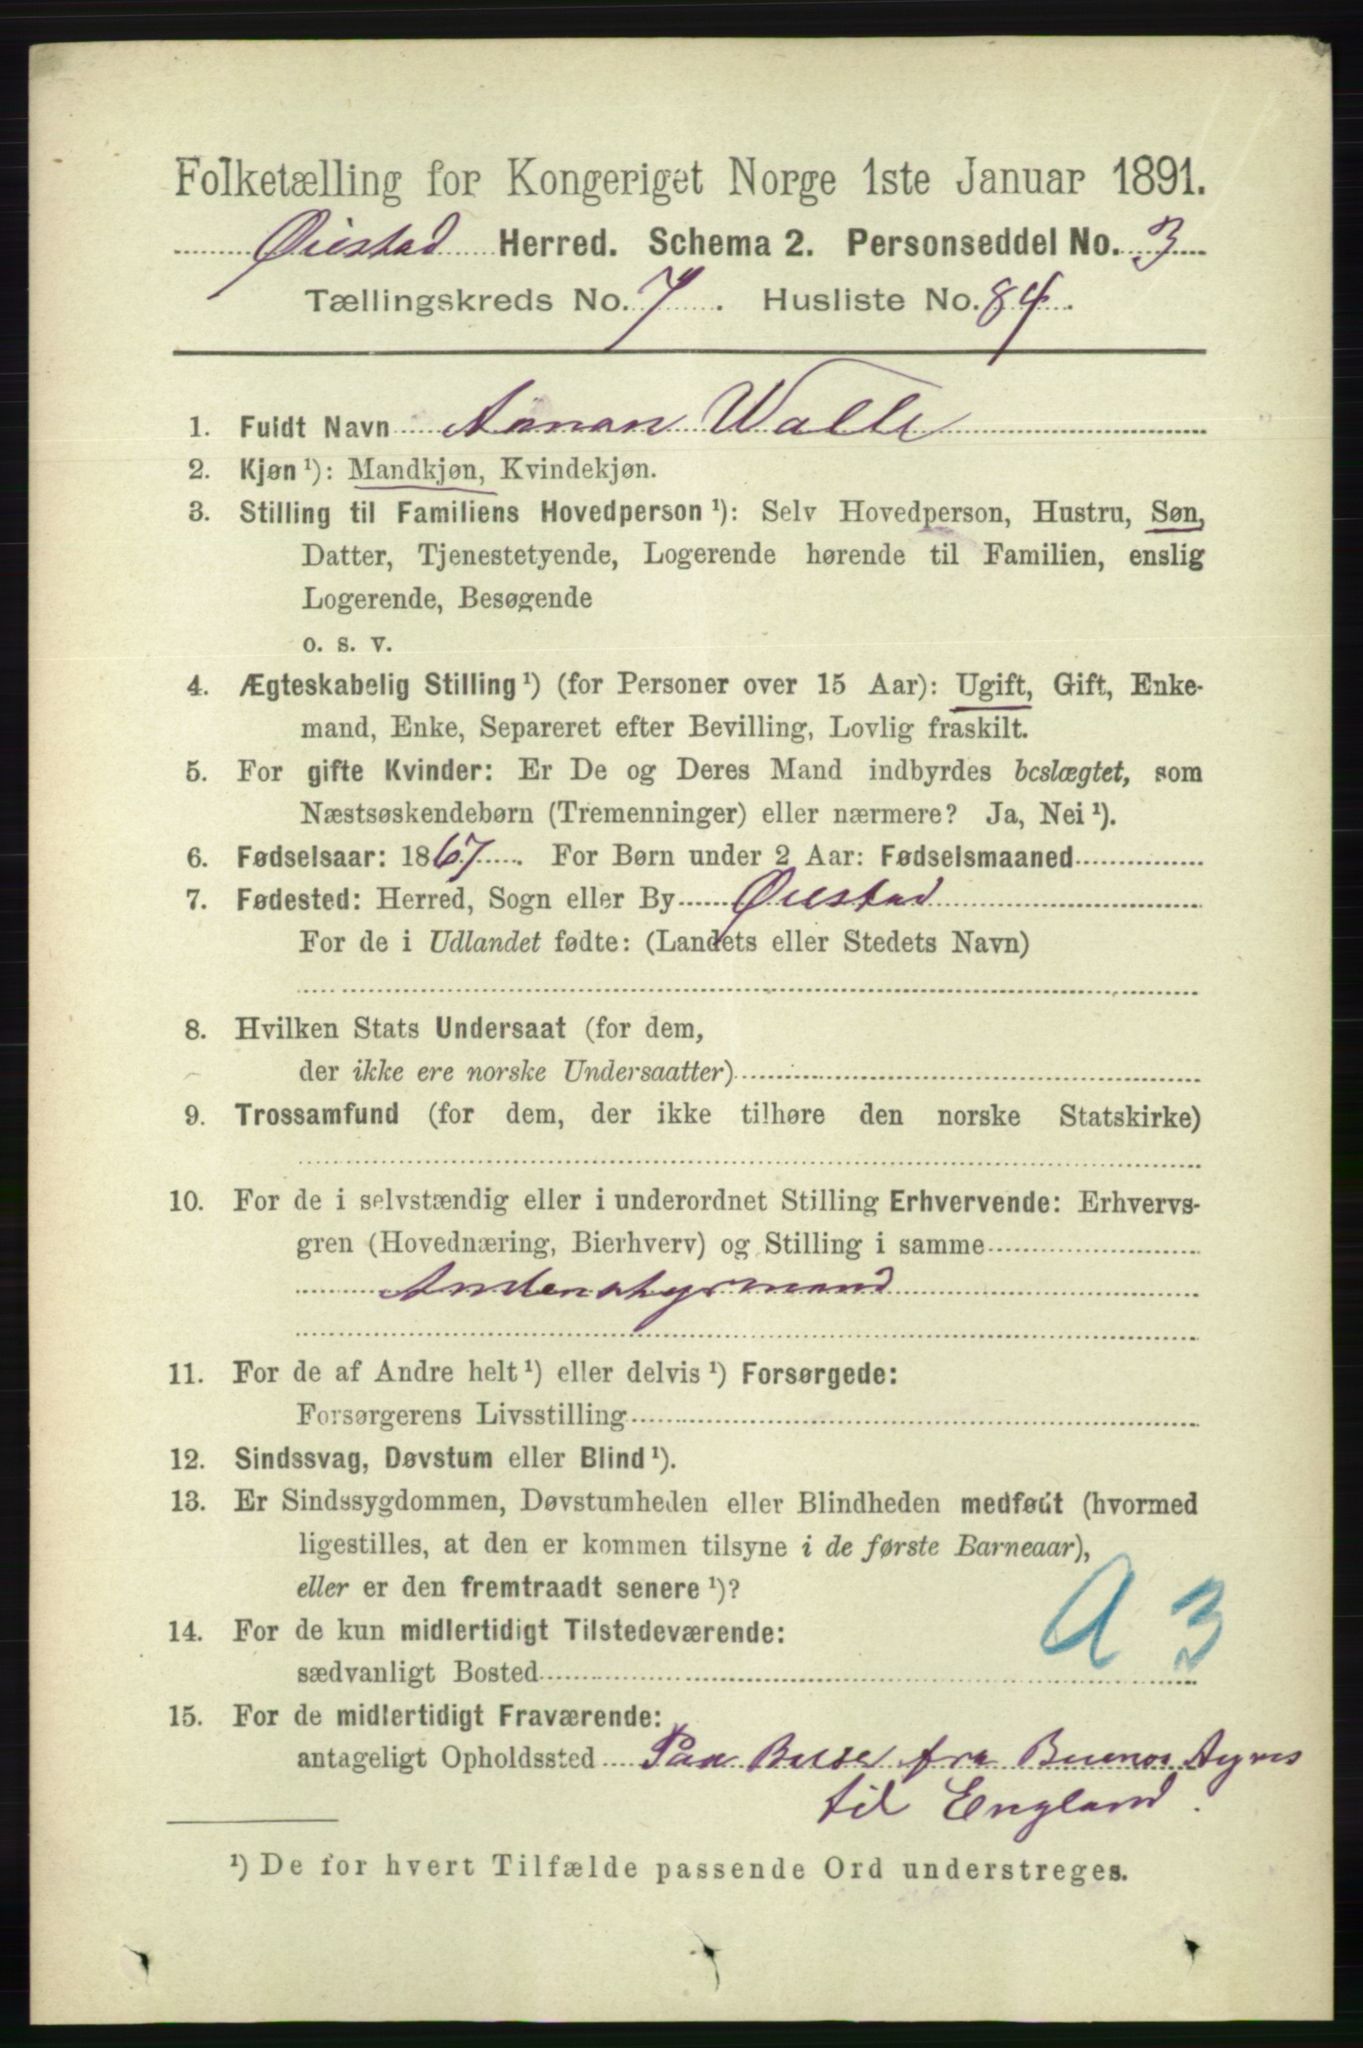 Folketælling for Kongeriget Norge 1ste Januar 1891.
Øiestad Herred. Schema 2. Personseddel No. 3
Tællingskreds No. 7. Husliste No. 84.
1. Fuldt Navn Aanon Walle
2. Kjøn ¹): Mandkjøn, Kvindekjøn.
3. Stilling til Familiens Hovedperson ¹): Selv Hovedperson, Hustru, Søn,
Datter, Tjenestetyende, Logerende hørende til Familien, enslig
Logerende, Besøgende
o. s. v.
4. Ægteskabelig Stilling ¹) (for Personer over 15 Aar): Ugift, Gift, Enke-
mand, Enke, Separeret efter Bevilling, Lovlig fraskilt.
5. For gifte Kvinder: Er De og Deres Mand indbyrdes beslægtet, som
Næstsøskendebørn (Tremenninger) eller nærmere? Ja, Nei ¹).
6. Fødselsaar: 1867. For Børn under 2 Aar: Fødselsmaaned
7. Fødested: Herred, Sogn eller By Øiestad
For de i Udlandet fødte: (Landets eller Stedets Navn)
8. Hvilken Stats Undersaat (for dem,
der ikke ere norske Undersaatter)
9. Trossamfund (for dem, der ikke tilhøre den norske Statskirke)
10. For de i selvstændig eller i underordnet Stilling Erhvervende: Erhvervs-
gren (Hovednæring, Bierhverv) og Stilling i samme
Andenstyrmand
11. For de af Andre helt ¹) eller delvis ¹) Forsørgede:
Forsørgerens Livsstilling
12. Sindssvag, Døvstum eller Blind ¹).
13. Er Sindssygdommen, Døvstumheden eller Blindheden medfødt (hvormed
ligestilles, at den er kommen tilsyne i de første Barneaar),
eller er den fremtraadt senere ¹)?
A 3
14. For de kun midlertidigt Tilstedeværende:
sædvanligt Bosted
15. For de midlertidigt Fraværende:
antageligt Opholdssted Paa Reise fra Buenos Ayres
til England.
¹) De for hvert Tilfælde passende Ord understreges.